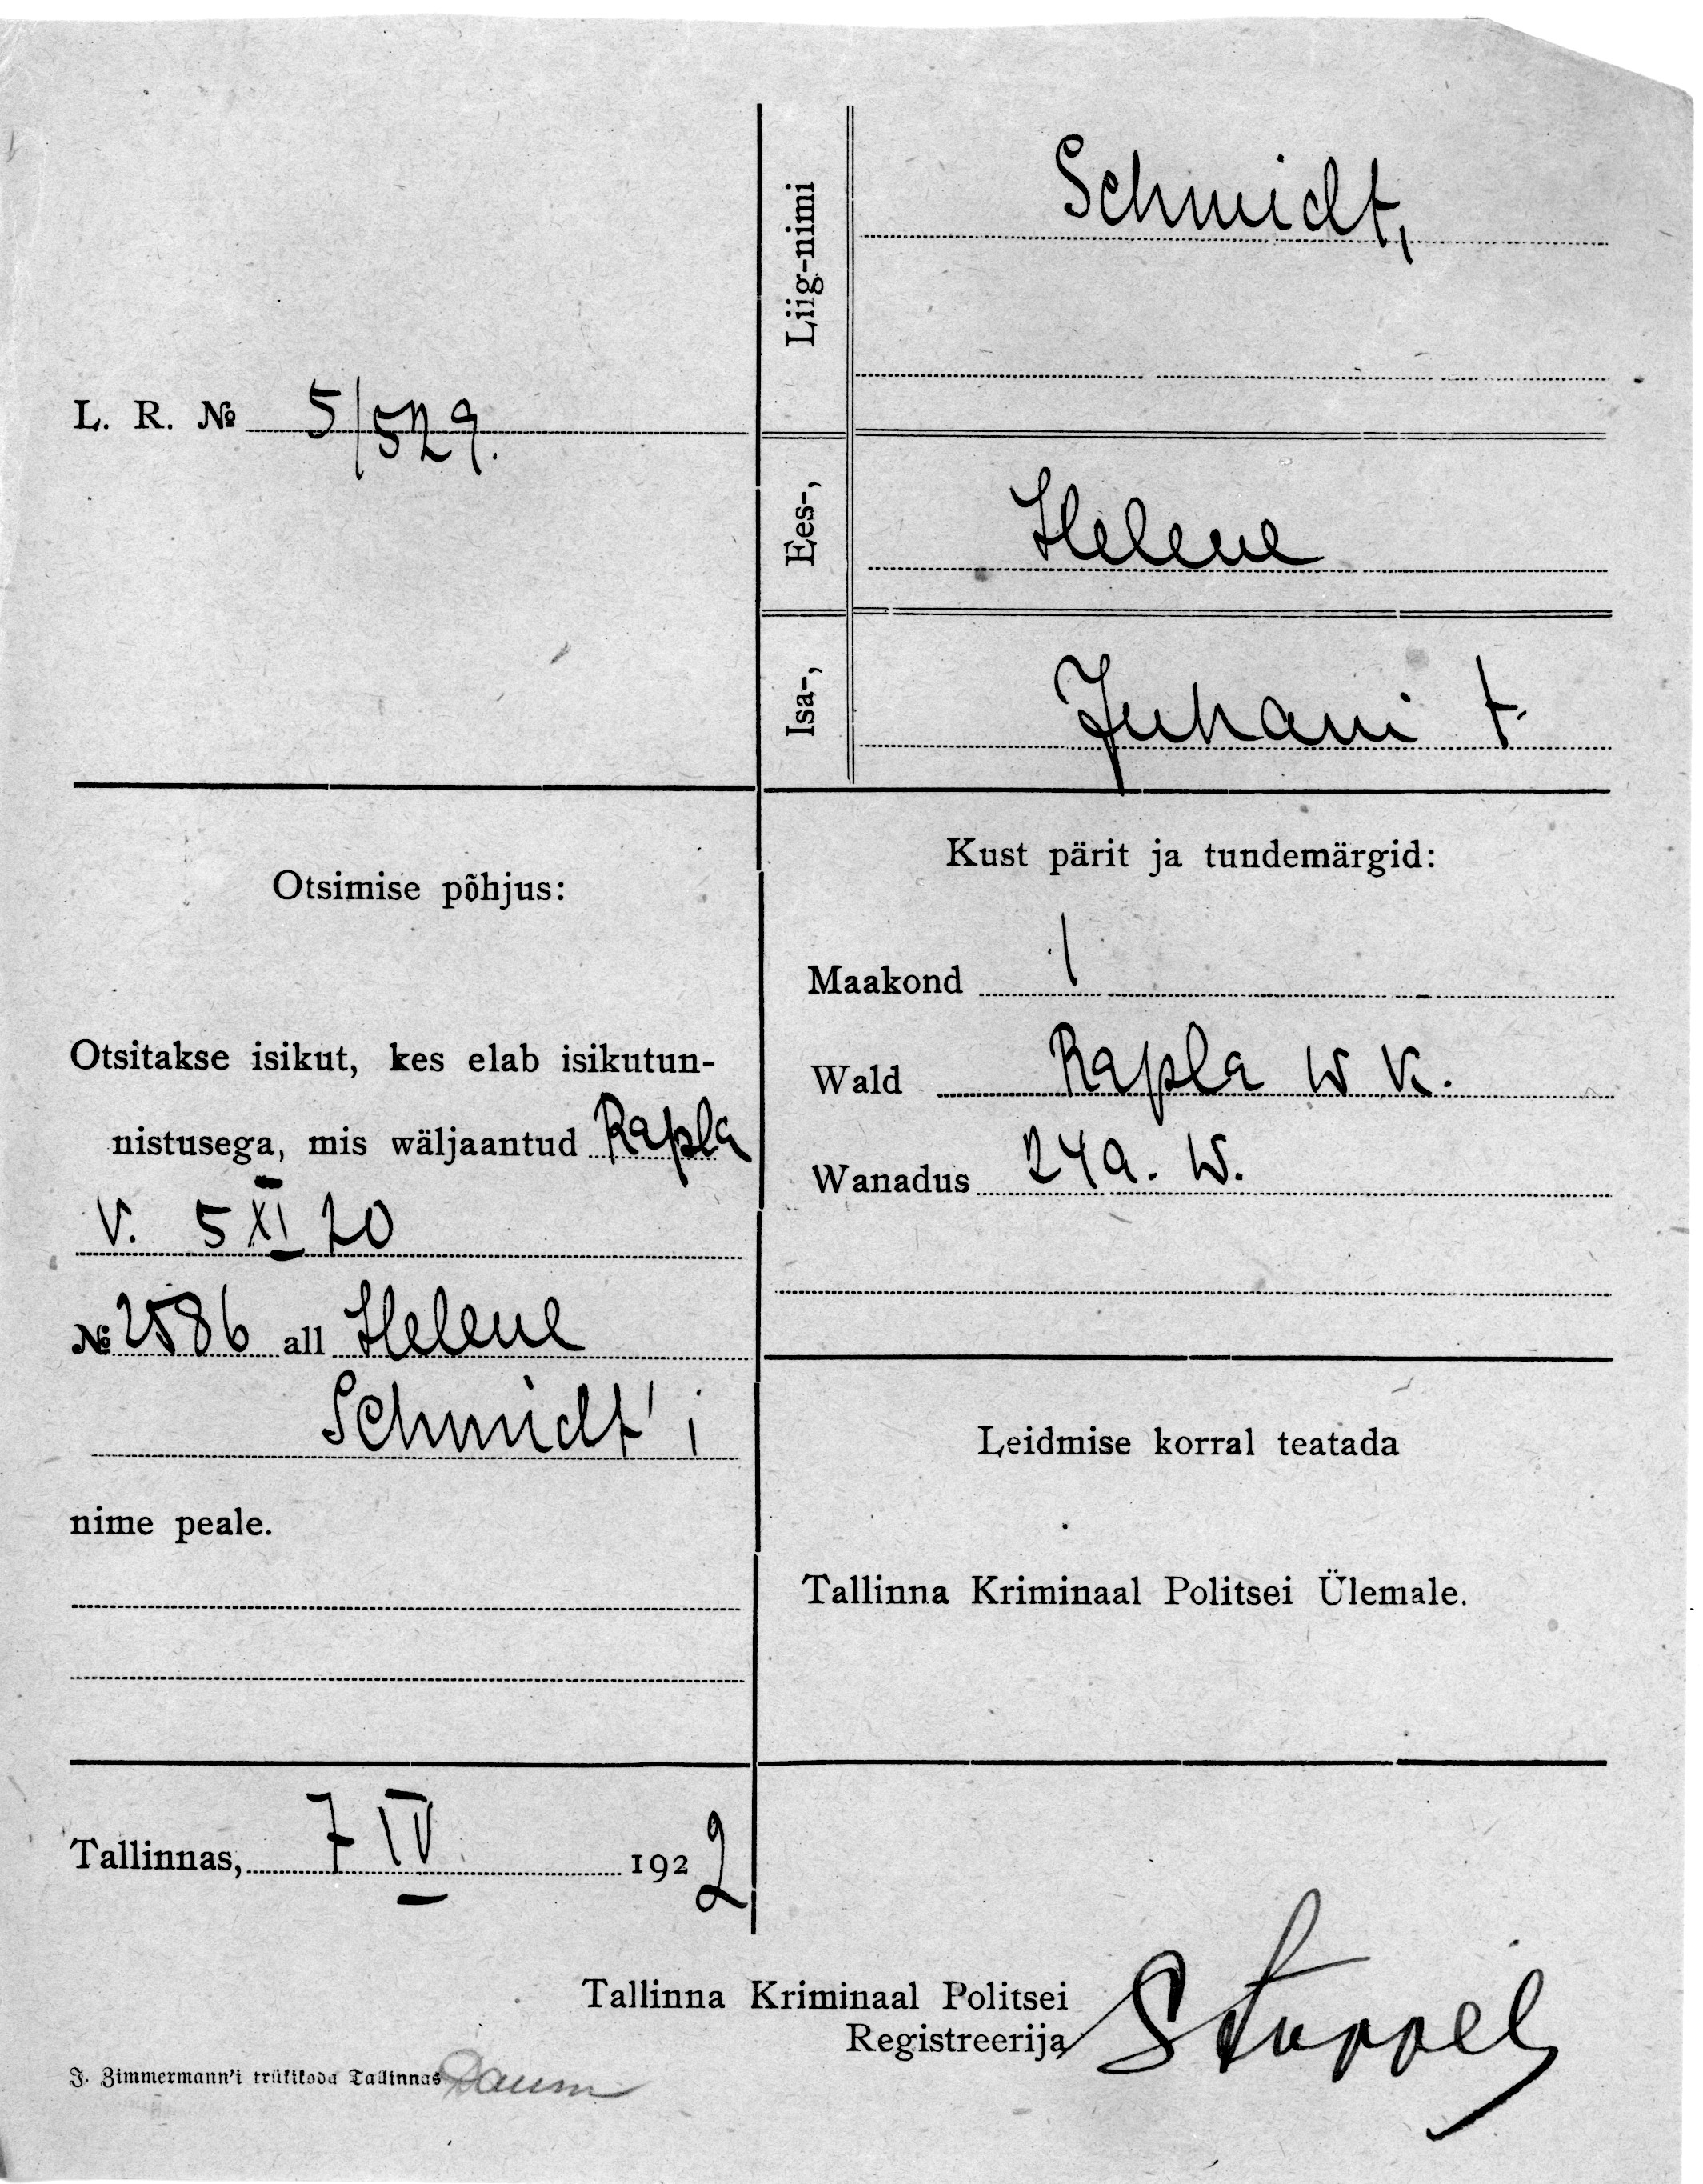 L. R. № 5/529.
Liig-nimi Schmidt,
Ees-, Helene
Isa-, Juhani t.
Otsimise põhjus:
Otsitakse isikut, kes elab isikutun-
nistusega, mis wäljaantud Rapla
V. 5 XI 20
№ 2586 all Helene
Schmidt'i
nime peale.
Kust pärit ja tundemärgid:
Maakond
Wald Rapla w k.
Wanadus 24 a. w.
Leidmise korral teatada
Tallinna Kriminaal Politsei Ülemale.
Tallinnas, 7 IV 1922
Tallinna Kriminaal Politsei
Registreerija
J. Zimmermann'i trükikoda Tallinnas